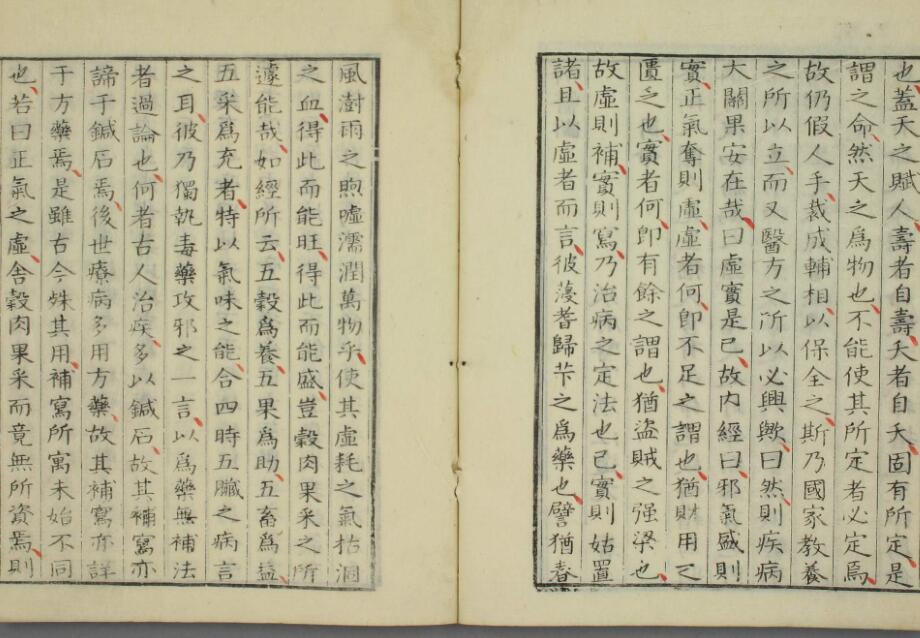 也蓋天之賦人壽者自壽夭者自夭固有所定是
謂之命然天之爲物也不能使其所定者必定焉
故仍假人手裁成輔相以保全之斯乃國家敎養
之所以立而又醫方之所以必興歟曰然則疾病
大關果安在哉曰虛實是已故内經曰邪氣盛則
實正氣奪則虛虛者何卽不足之謂也猶財用之
匱乏也實者何卽有餘之謂也猶盜賊之强梁也
故虛則補實則寫乃治病之定法也已實則姑置
諸且以虛者而言彼薓耆歸芐之爲藥也譬猶春
風澍雨之煦噓濡潤萬物乎使其虛耗之氣枯涸
之血得此而能旺得此而能盛豈穀肉果采之所
遽能哉如經所云五穀爲養五果爲助五畜爲益
五采爲充者特以氣味之能合四時五臟之病言
之耳彼乃獨執毒藥攻邪之一言以爲藥無補法
者過論也何者古人治疾多以鍼石故其補寫亦
諦于鍼石焉後世療病多用方藥故其補寫亦詳
于方藥焉是雖古今殊其用補寫所寓未始不同
也若曰正氣之虛舍穀肉果采而竟無所資焉則